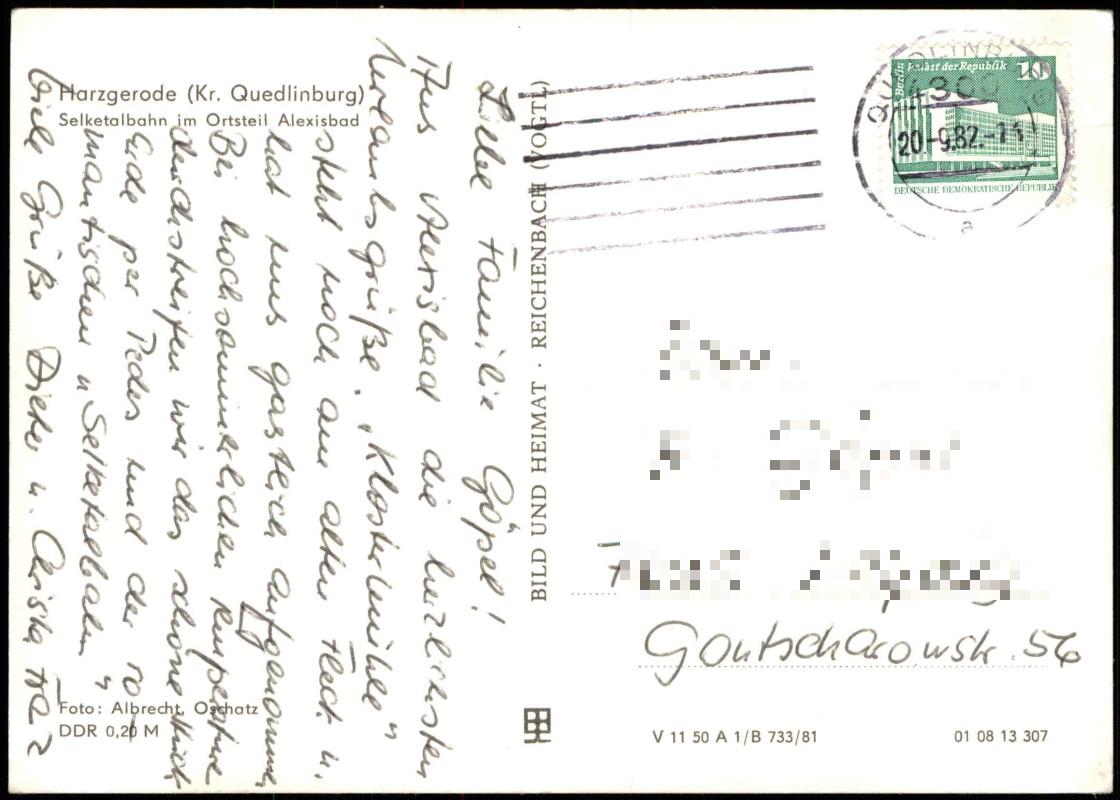 Harzgerode (Kr. Quedlinburg)
Selketalbahn im Ortsteil Alexisbad
Liebe Familie Göpel!
Aus Alexisbad die herzlichsten
Urlaubsgrüße. „Klostermühle"
steht noch am alten Fleck u.
hat uns gastlich aufgenommen.
Bei hochsommerlichen Temperature
durchstreifen wir das schöne Stück
Erde per Pedes und der ro-
mantischen „Selketalbahn"
Viele Grüße Dieter u. Christa
Foto: Albrecht, Oschatz
DDR 0,20 M
BILD UND HEIMAT · REICHENBACH (VOGTL)
Berlin Palast der Republik 10
DEUTSCHE DEMOKRATISCHE REPUBLIK
QUEDLINBURG
4300
20.-9.82.-11
a
Gontscharowstr. 56
V 11 50 A 1/B 733/81
01 08 13 307